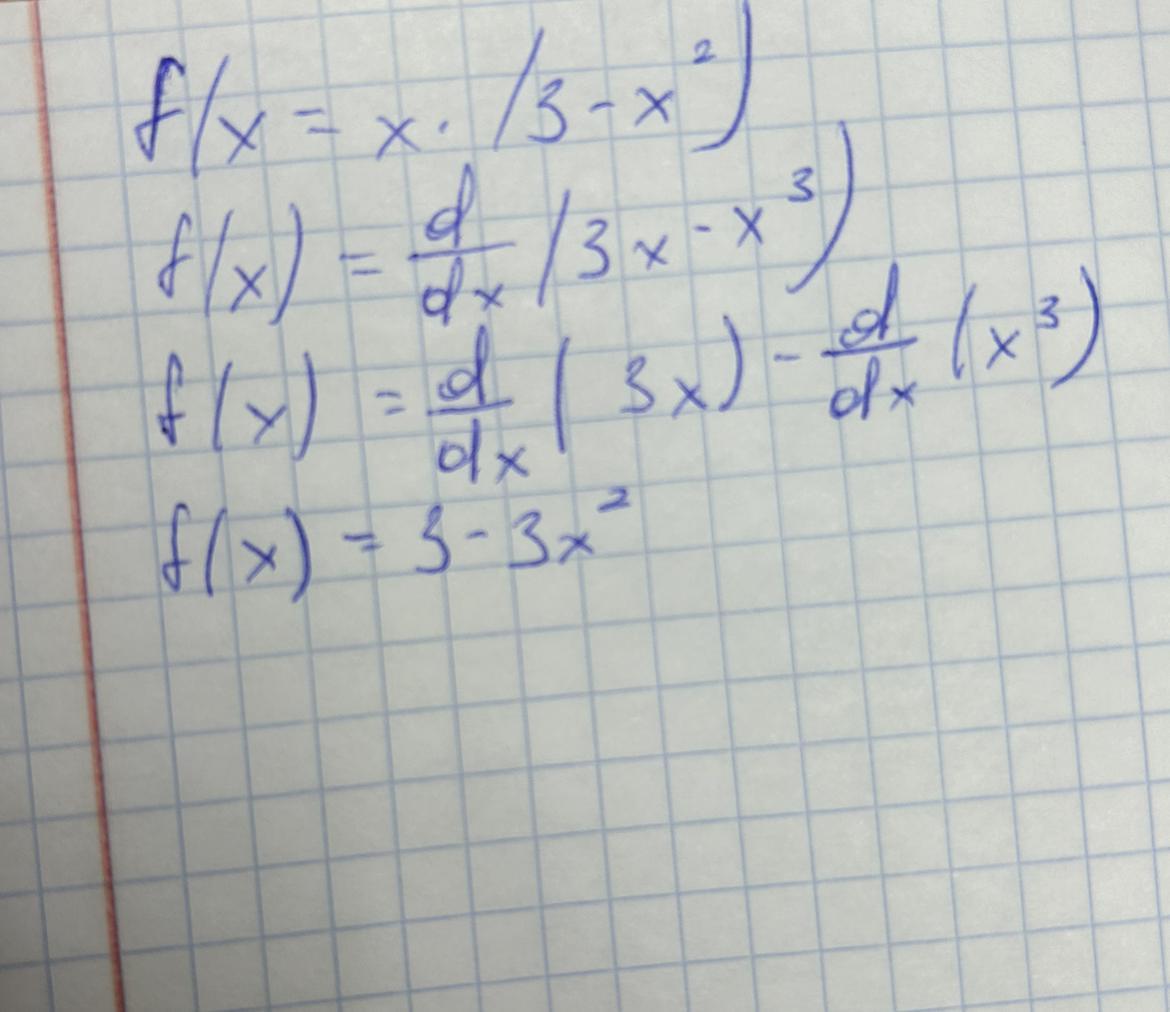 f(x = x · (3 - x²)
f(x) = d/dx (3x - x³)
f(x) = d/dx (3x) - d/dx (x³)
f(x) = 3 - 3x²